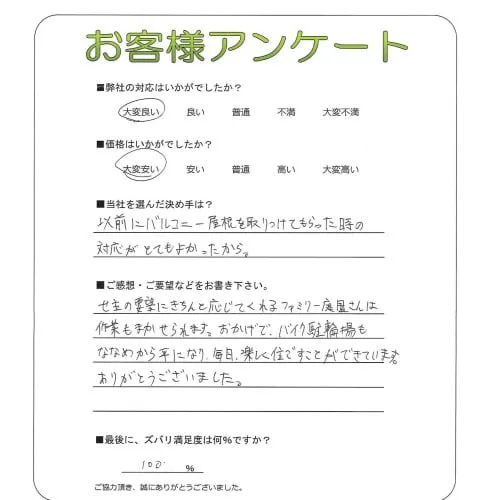 お客様アンケート
■弊社の対応はいかがでしたか？
大変良い 良い 普通 不満 大変不満
■価格はいかがでしたか？
大変安い 安い 普通 高い 大変高い
■当社を選んだ決め手は？
以前にバルコニー屋根を取りつけてもらった時の
対応がとてもよかったから。
■ご感想・ご要望などをお書き下さい。
せ主の要望にきちんと応じてくれるファミリー庭園さんは
作業もまかせられます。おかげで、バイク駐輪場も
ななめから平になり、毎日、楽しく住ですことができています。
ありがとうございました。
■最後に、ズバリ満足度は何％ですか？
100 ％
ご協力頂き、誠にありがとうございました。